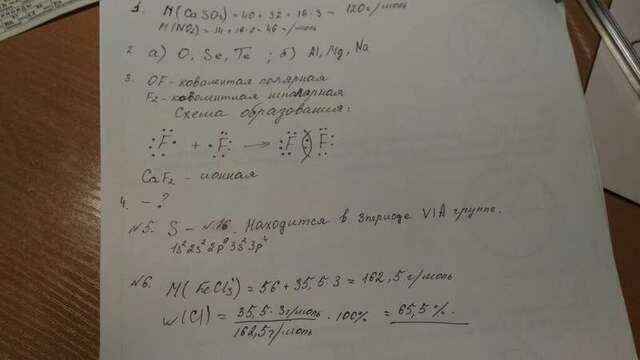 1. M(CaSO3) = 40 + 32 = 16·3 = 120 г/моль
M(NO2) = 14 + 16·2 = 46 г/моль
2 а) O, Se, Te ; б) Al, Mg, Na
3. OF - ковалентая полярная
F2 - ковалентная неполярная
Схема образования:
F + F → F F
CaF2 - ионная
4. - ?
№5. S - №16. Находится в 3периоде VIA группе.
1s² 2s² 2p⁶ 3s² 3p⁴
№6. M(FeCl3) = 56 + 35,5·3 = 162,5 г/моль
W(Cl) = 35,5·3г/моль / 162,5г/моль · 100% = 65,5%.